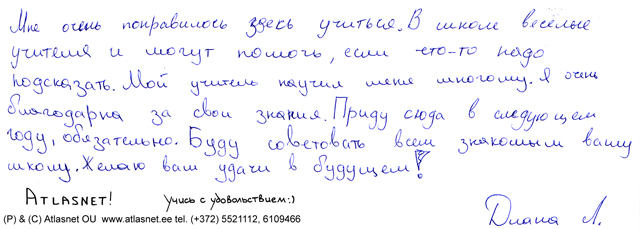 Мне очень понравилось здесь учиться. В школе весёлые
учителя и могут помочь, если что-то надо
подсказать. Мой учитель научил меня многому. Я очень
благодарна за свои знания. Приду сюда в следующем
году, обязательно. Буду советовать всем знакомым вашу
школу. Желаю вам удачи в будущем!
ATLASNET! Учись с удовольствием:)
(P) & (C) Atlasnet OU www.atlasnet.ee tel. (+372) 5521112, 6109466
Диана Л.